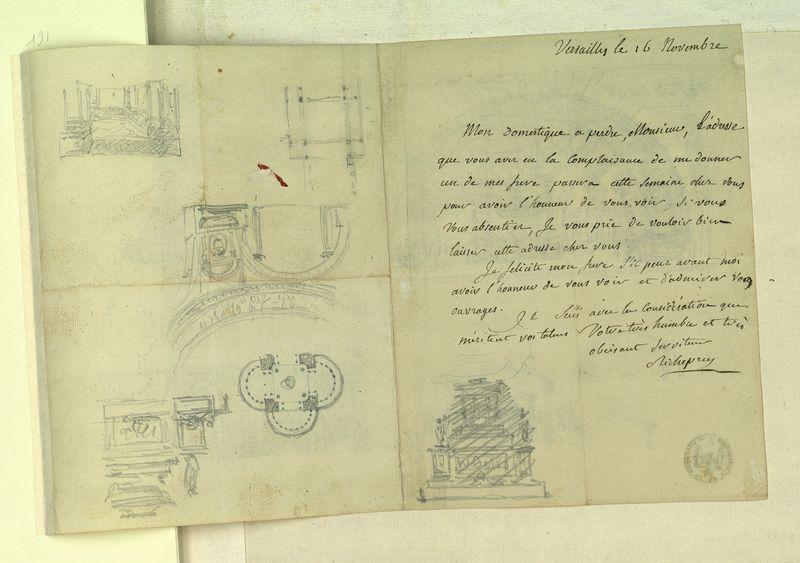 191
Versailles le 16 Novembre
Mon domestique a perdu, Monsieur, l'adresse
que vous avez eu la complaisance de me donner
un de mes frere passera cette semaine chez vous
pour avoir l'honneur de vous voir si vous
vous absentier, Je vous prie de vouloir bien
laisser cette adresse chez vous.
Je félicite mon frere s'il peux avant moi
avoir l'honneur de vous voir et d'admirer vos
ouvrages.
Je suis avec la Considération que
méritent vos talens Votre très humble et très
obéisant Serviteur